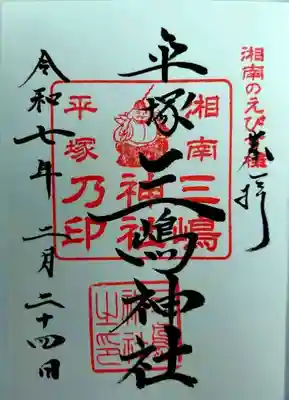 湘南のえびす様
奉拝
平塚三嶋神社
湘南三嶋
神社
平塚乃印
令和七年 二月 二十四日